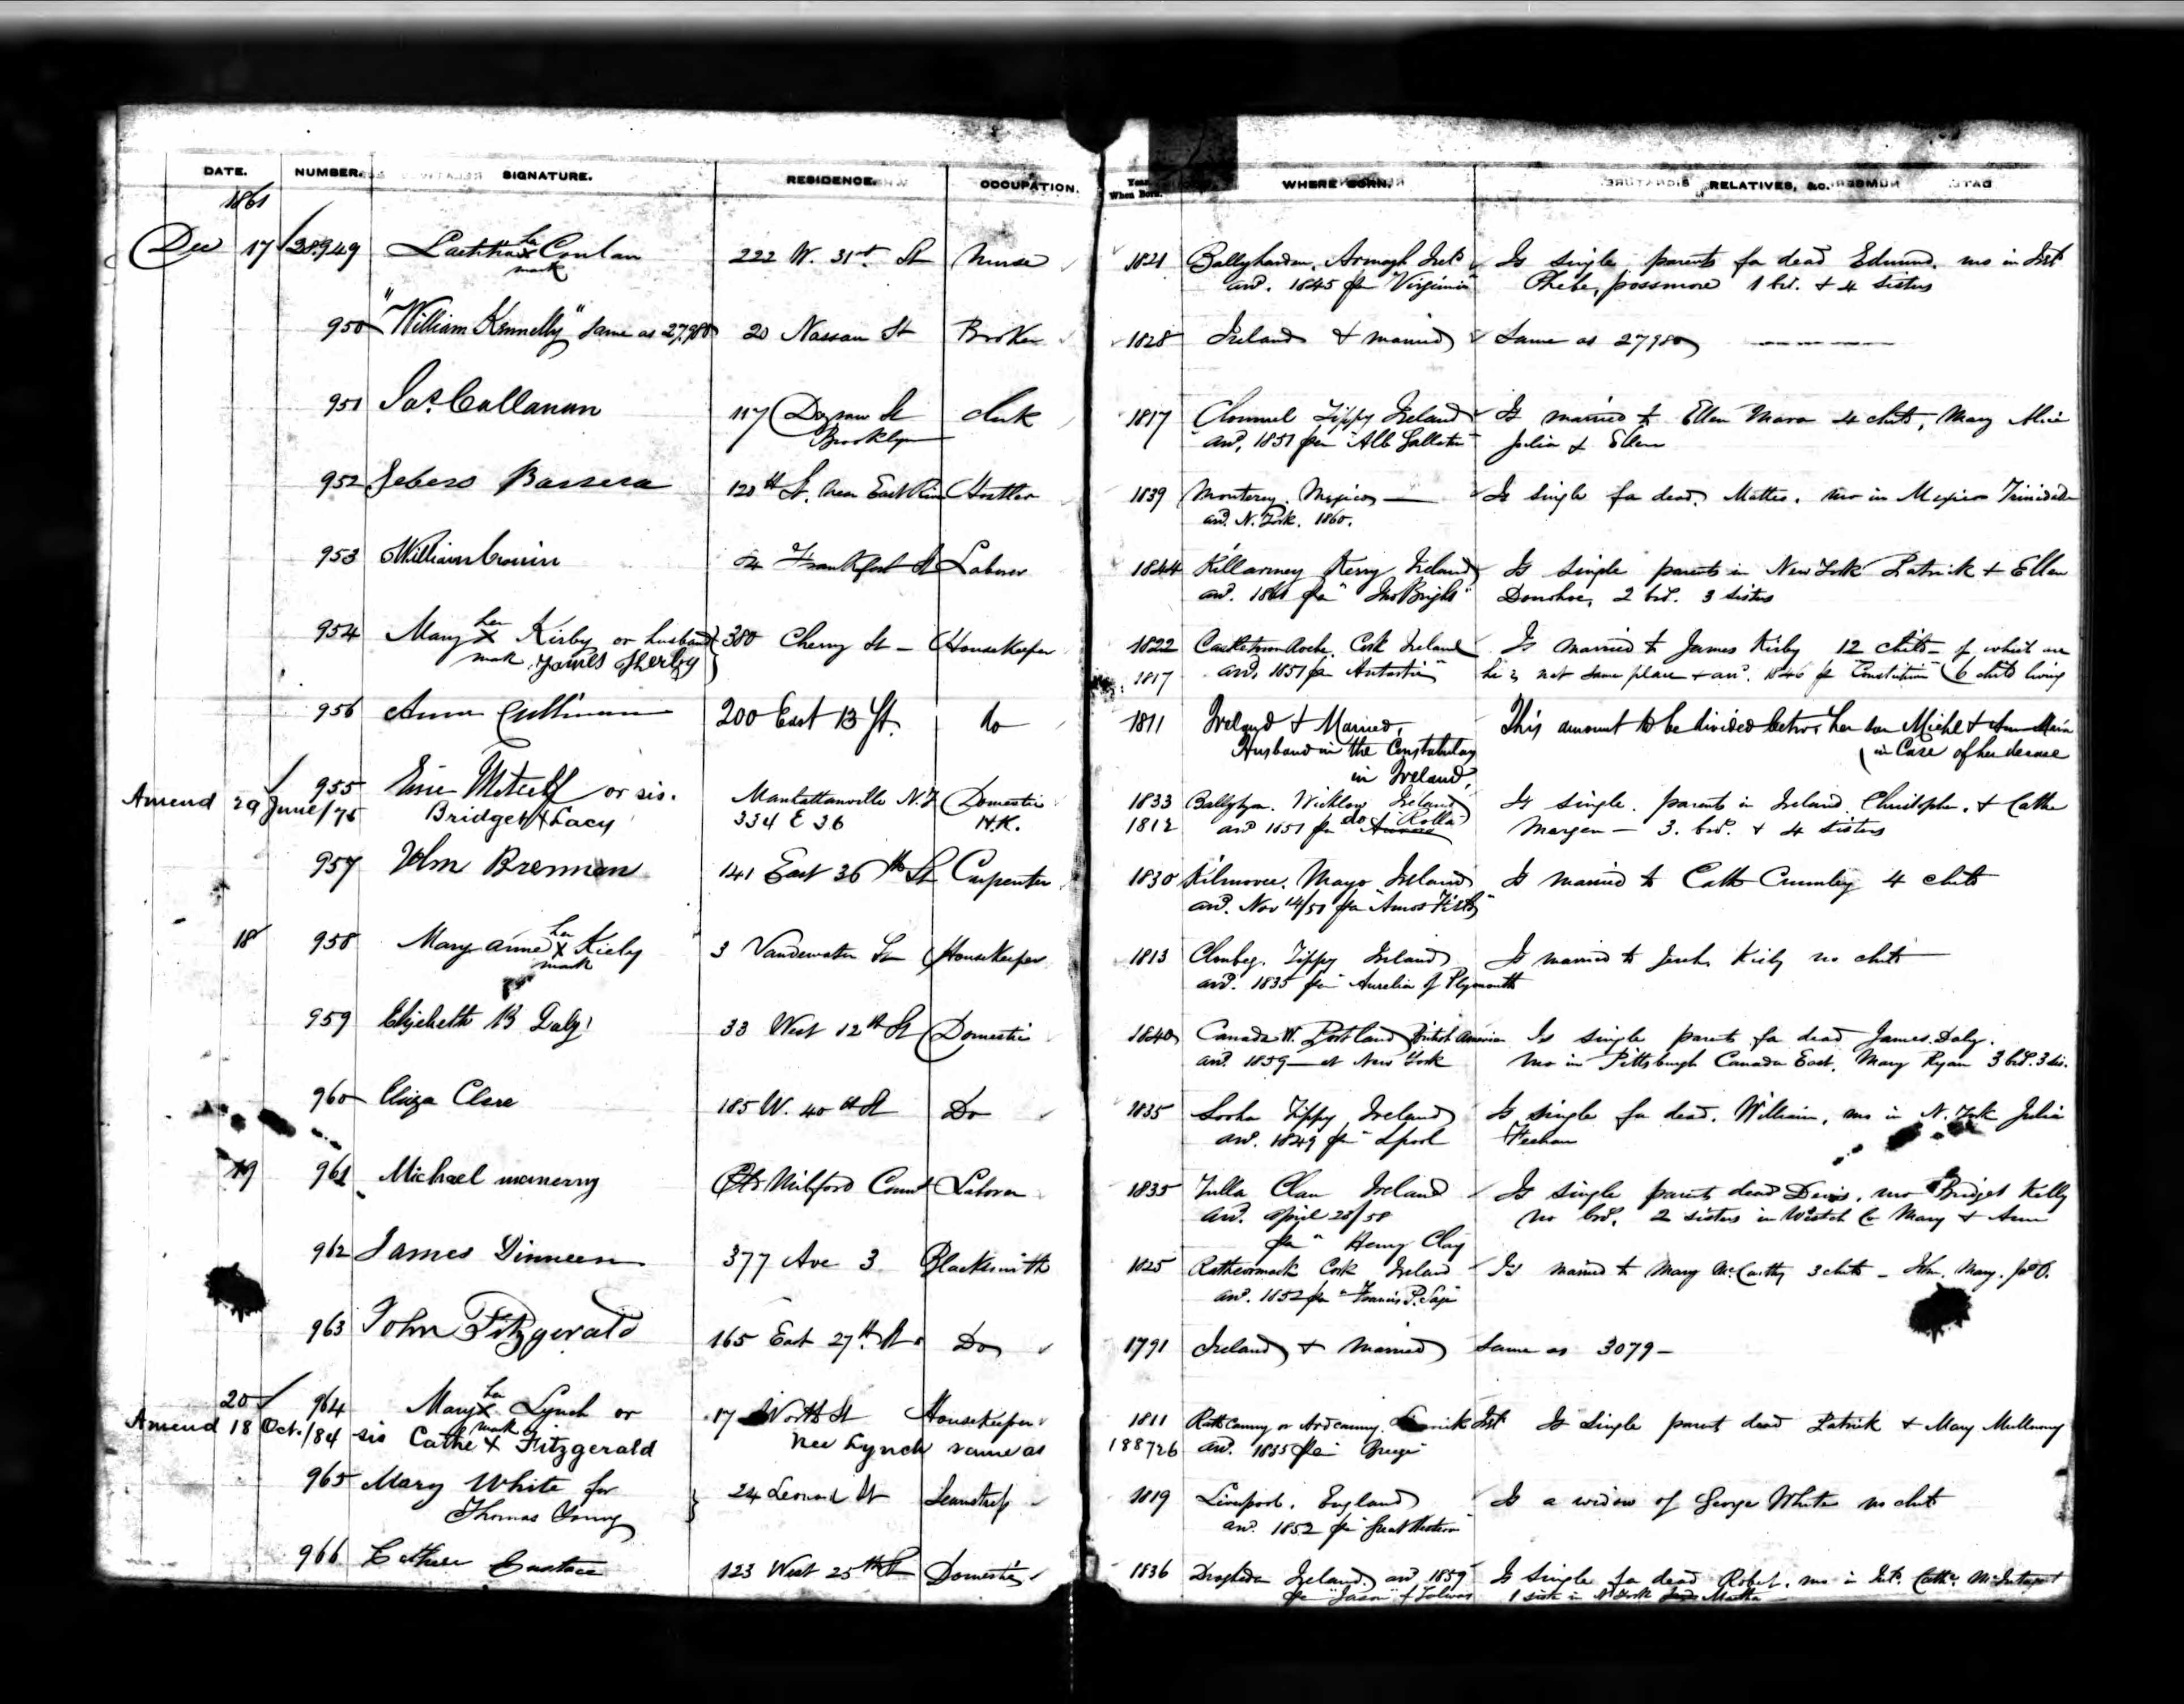 DATE. NUMBER. SIGNATURE. RESIDENCE. OCCUPATION. Year When Born. WHERE BORN. RELATIVES, &c.
1861
Dec 17 28949 her Conlan 222 W. 31st St Nurse 1821 Armagh Ireld Is single parents fa dead Edmund. mo in Ireld
mark arrd. 1845 per "Virginia" Phebe, 1 brd. + 4 sisters
950 "William Kennelly" same as 27980 20 Nassau St Broker 1828 Ireland & married Same as 27980
951 Jas. Callanan 117 Degraw St Clerk 1817 Clonmel Tippy Ireland Is married to Ellen Mara 4 chits, Mary Alice
Brooklyn arrd. 1851 per "Alb Gallatin" Julia & Ellen
952 Barrera 120th St. near East River Hostler 1839 Monterey. Mexico Is single fa dead. Matteo. mo in Mexico Trinidada
arrd. N. York. 1860.
953 William Cronin 64 Frankfort St Laborer 1844 Killarney Kerry Ireland Is single parents in New York Patrick & Ellen
arrd. 1861 per "Jno Bright" Donohoe, 2 brd. 3 sisters
954 Mary her X Kirby or husband 380 Cherry St Housekeeper 1822 Castletownroche. Cork Ireland Is married to James Kirby 12 chits of which are
mark James 1817 arrd. 1851 per he is not same place & arrd. 1846 per "Constitution" (6 chits living
956 Anna Cullinan 200 East 13 St. do 1811 Ireland & Married, This amount to be divided betwn her son Michl &
Husband in the Constabulary in Case of her decease
in Ireland,
955 Metcalf or sis. Manhattanville N.Y Domestic 1833 Wicklow Ireland Is single. parents in Ireland. Christopher. & Cathe
Amend 29 June/75 Bridget X Lacy 334 E 36 H.K. 1812 arrd 1851 per do "Rolla" 3. brd. & 4 sisters
957 Wm Brennan 141 East 36th St Carpenter 1830 Kilmovee. Mayo Ireland Is married to Cath Crumley 4 chits
arrd. Nov 14/50 per "Amos
18 958 Mary Anne her X Kiely 3 Vandewater St Housekeeper 1813 Tippy Ireland Is married to Kiely no chits
mark arrd. 1835 per Aurelia of Plymouth
959 Elizebeth B Daly 33 West 12th St Domestic 1840 Canada W. Portland British America Is single parents fa dead James Daly.
arrd. 1859 at New York mo in Pittsburgh Canada East, Mary Ryan 3 brd. 3 sis.
960 Eliza Clare 185 W. 40th St Do 1835 Tippy Ireland Is single fa dead. William, mo in N. York Julia
arrd. 1849 per Lpool
19 961 Michael Milford Laborer 1835 Tulla Clare Ireland Is single parents dead Denis, mo Bridget Kelly
arrd. April 20/58 no brd. 2 sisters in Westch Co Mary & Ann
per "Henry Clay
962 James Dinneen 377 Ave 3 Blacksmith 1825 Rathcormack Cork Ireland Is married to Mary McCarthy 3 chits Mary.
arrd. 1852 per "Francis P. Sage"
963 John Fitzgerald 165 East 27th St Do 1791 Ireland & Married Same as 3079
20 964 Mary her X Lynch or 17 Worth St Housekeeper 1811 Rathcanny or Ardcanny. Limerick Ireld Is single parents dead Patrick & Mary
Amend 18 Oct./84 sis Cathe mark X Fitzgerald nee Lynch same as 188726 arrd. 1835 per
965 Mary White for 24 Leonard St Seamstress 1819 Liverpool, England Is a widow of George White no chits
Thomas Young arrd. 1852 per "Great Western"
966 Eustace 123 West 25th St Domestic 1836 Drogheda Ireland arrd 1859 Is single fa dead Robert, mo in Ireld. Cathe.
per "Jason" of Galway 1 sister in N York Martha